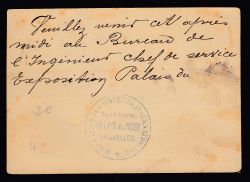 Veuillez venir cet après
midi au Bureau de
l'Ingénieur chef de service
Exposition Palais du
PALAIS du MIDI
BRUXELLES